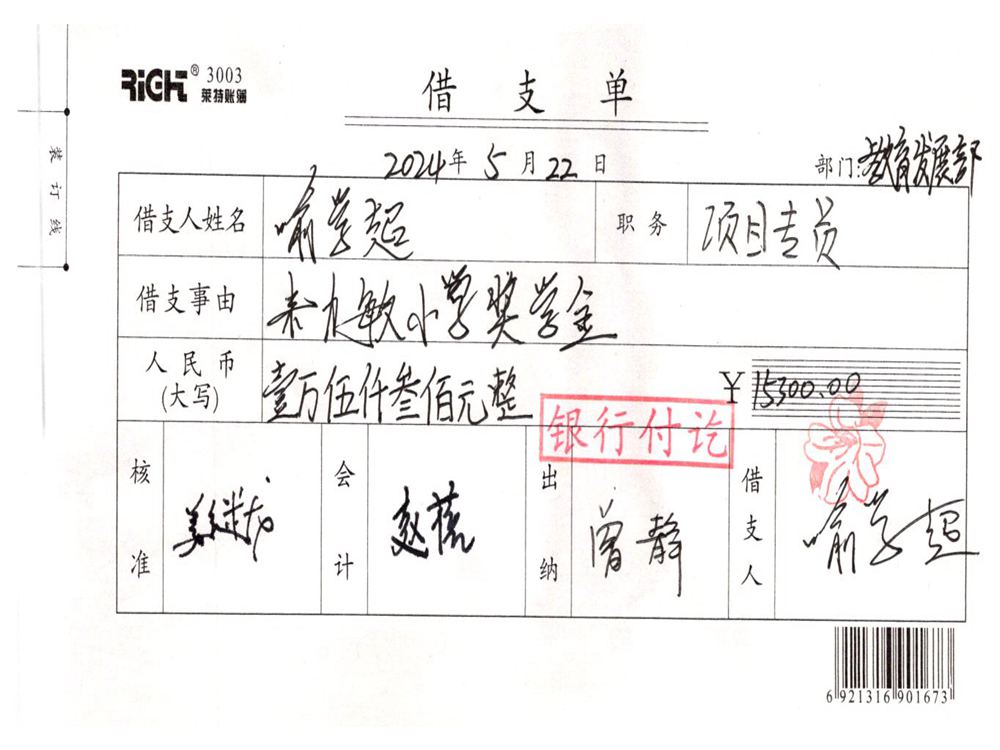 RiGHT® 3003
莱特账簿
借支单
装订线
2024年5月22日
部门:教育发展部
借支人姓名 喻学超 职务 项目专员
借支事由 敏小学奖学金
人民币(大写) 壹万伍仟叁佰元整 ¥15300.00
银行付讫
核准 会计 出纳 曾静 借支人 喻学超
6 921316 901673